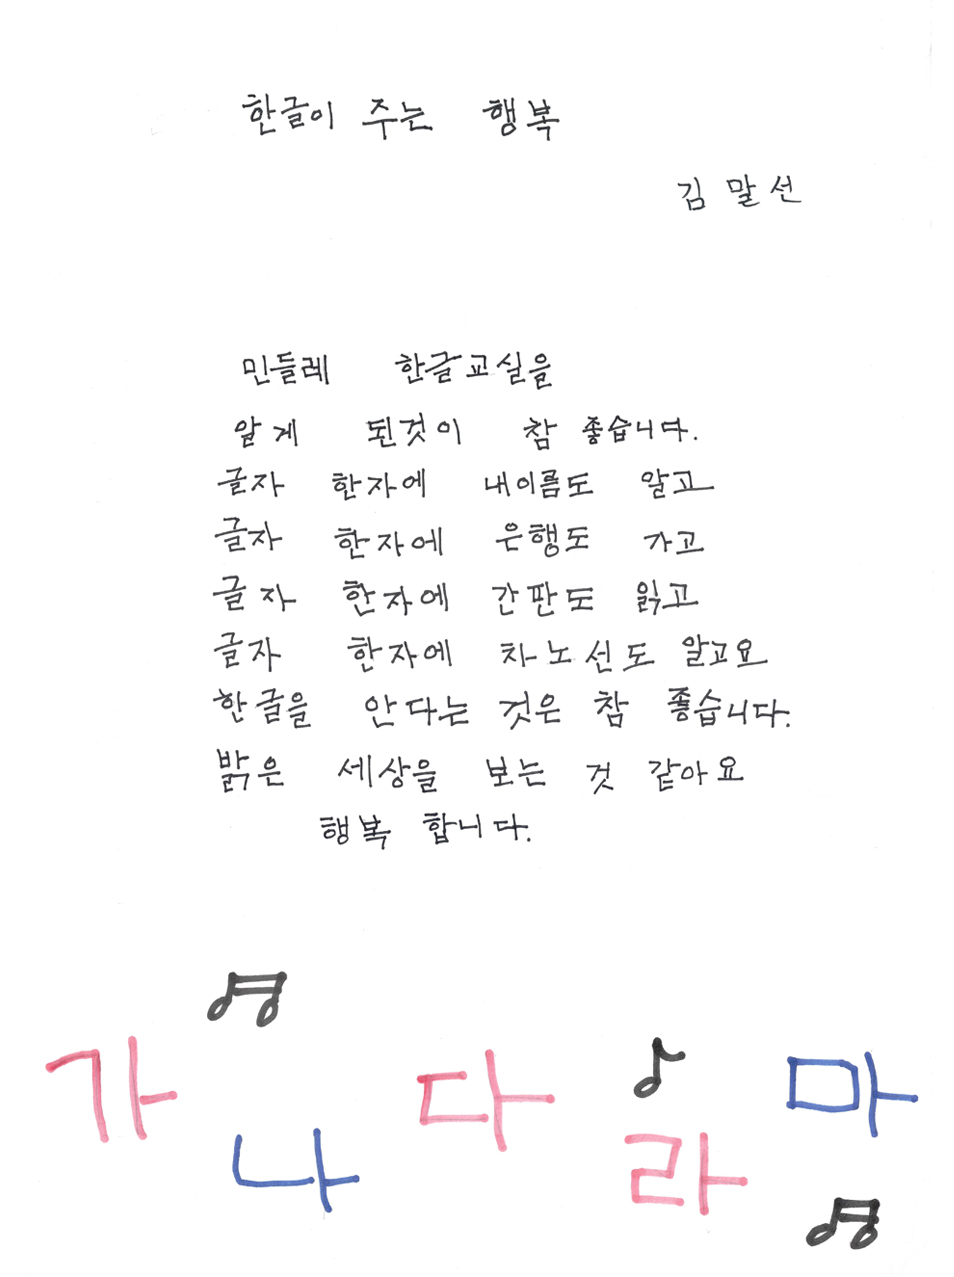 한글이 주는 행복
김말선
민들레 한글교실을
알게 된것이 참 좋습니다.
글자 한자에 내이름도 알고
글자 한자에 은행도 가고
글자 한자에 간판도 읽고
글자 한자에 차노선도 알고요
한글을 안다는 것은 참 좋습니다.
밝은 세상을 보는 것 같아요
행복 합니다.
가 나 다 라 마